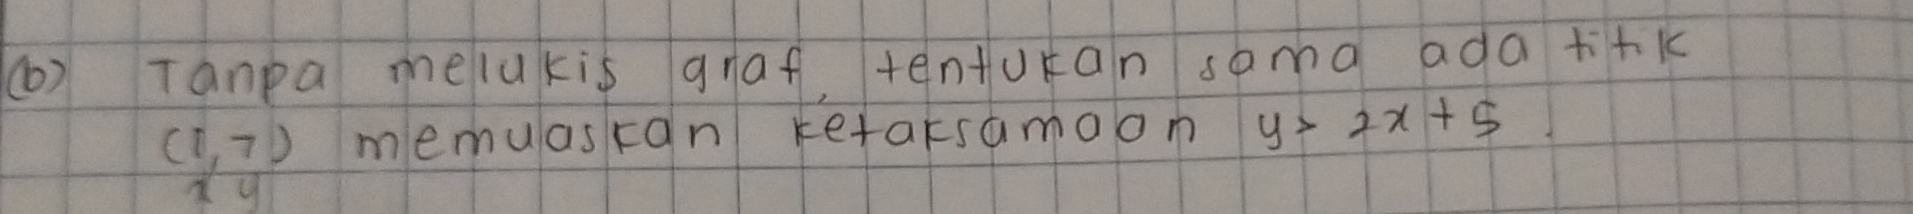 (b) Tanpa melukis graf, tentukan sama ada titik
(1,7) memuaskan ketaksamaan y > 2x + 5.
x y